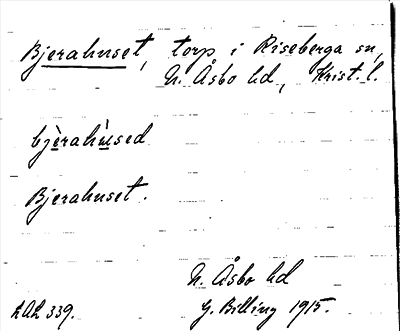 Bjerahuset, torp i Riseberga sn,
N. Åsbo hd, Krist. l.
bjèrahùsed
Bjerahuset.
N. Åsbo hd
LAL 339. G. Billing 1915.